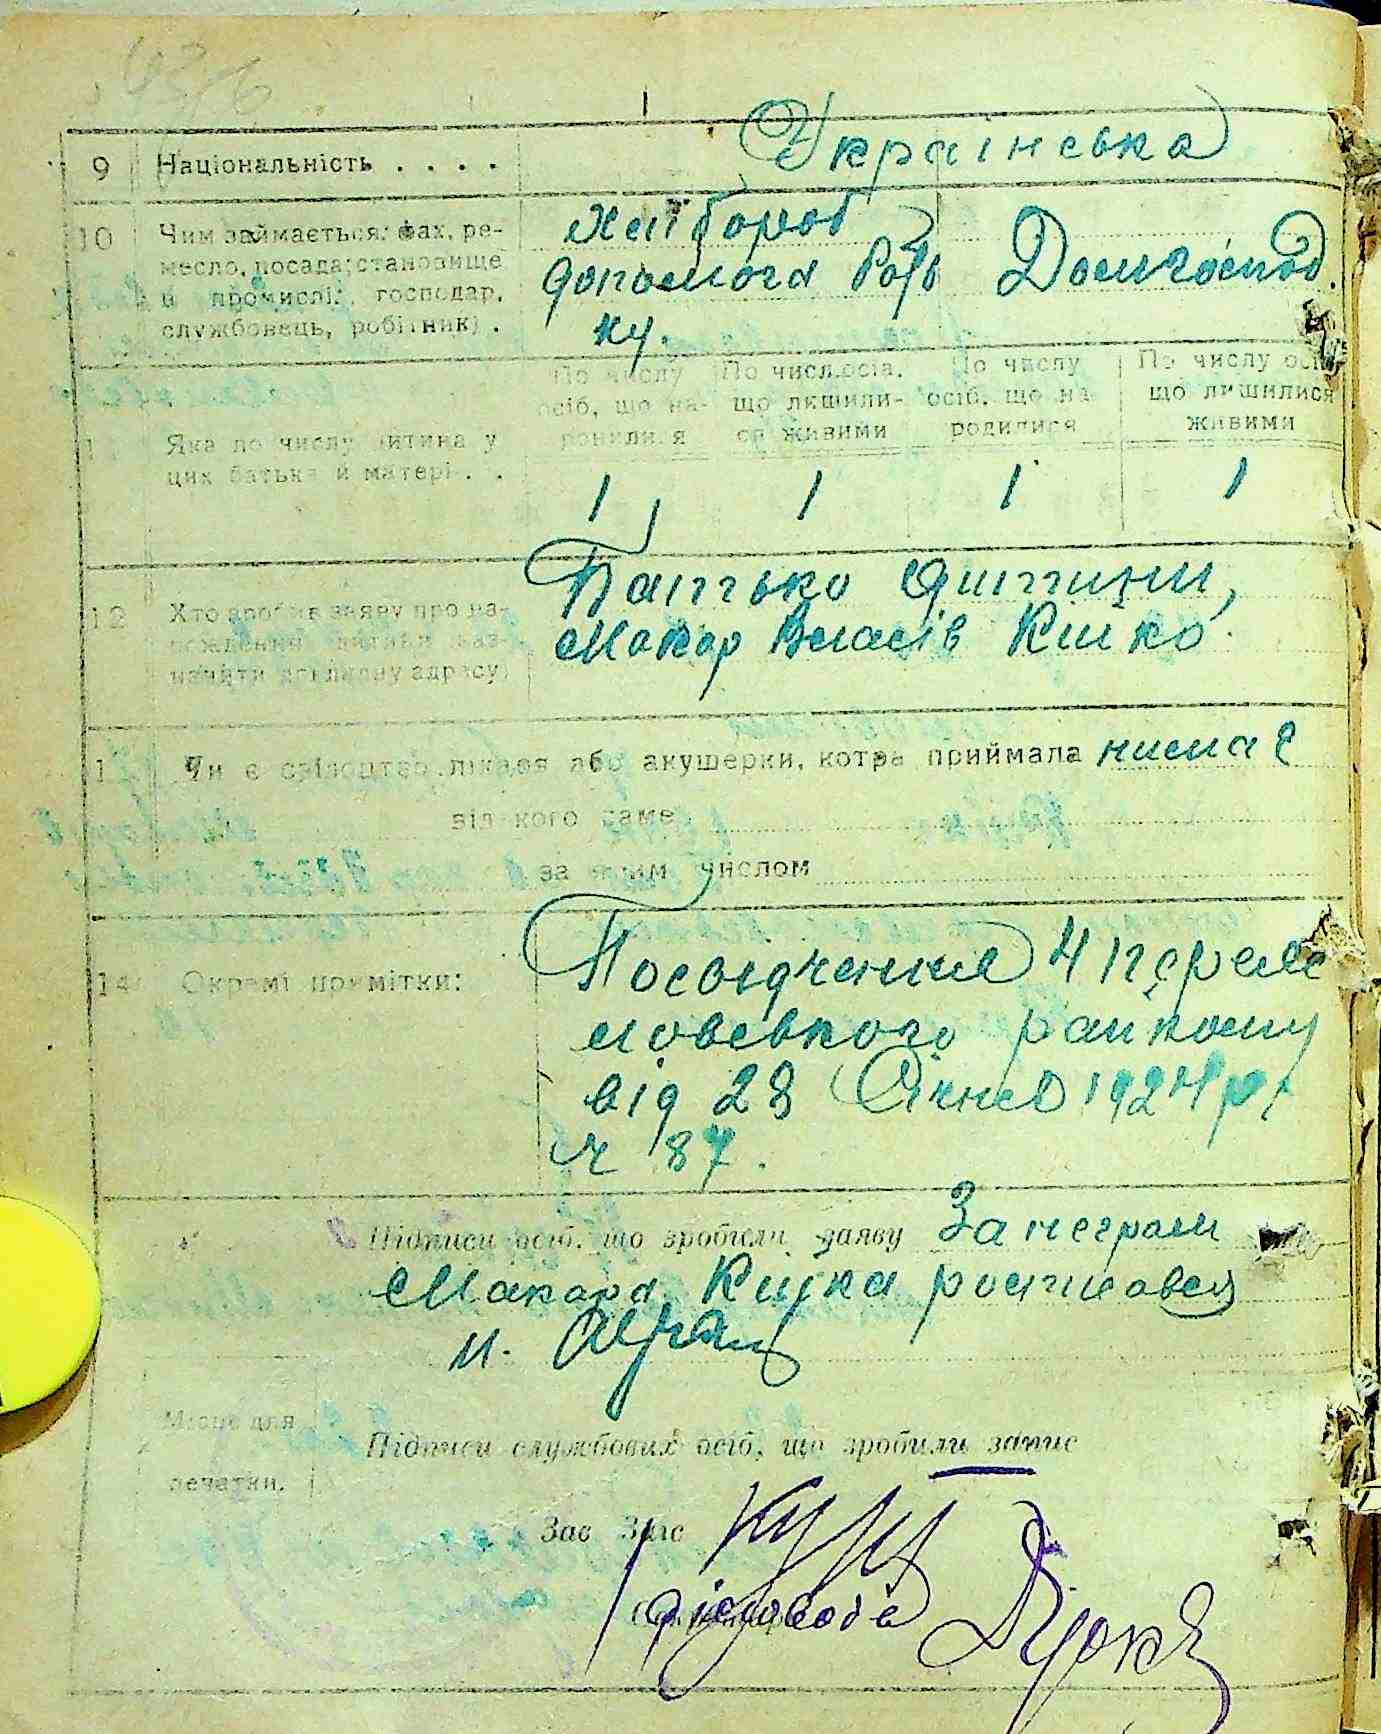 Українська
9 Національність . . . .
10 Чим займається: фах, ре-
месло, посада; становище
в промислі, господар,
службовець, робітник) .
Хлібороб
допомога бать Домгоспод.
ку.
По числу По числ. осіб, По числу По числу осіб
осіб, що на- що лишили- осіб, що на- що лишилися
родилися ся живими родилися живими
11 Яка по числу дитина у
цих батька й матері . .
1 1 1 1
12 Хто зробив заяву про на-
родження дитини (заз-
начити докладну адресу)
Батько дитини,
Макар Власів Кійко.
1 Чи є свідоцтво лікаря або акушерки, котра приймала нима є
від кого саме
за яким числом
14 Окремі примітки:
Посвідчення Ч
райкому
від 28 Січня 1924 р.
ч 87.
Підписи осіб, що зробили заяву За неграм
Макара Кійка росписався
и.
Місце для
печатки.
Підписи службових осіб, що зробили запис
Зав Загс
діловода